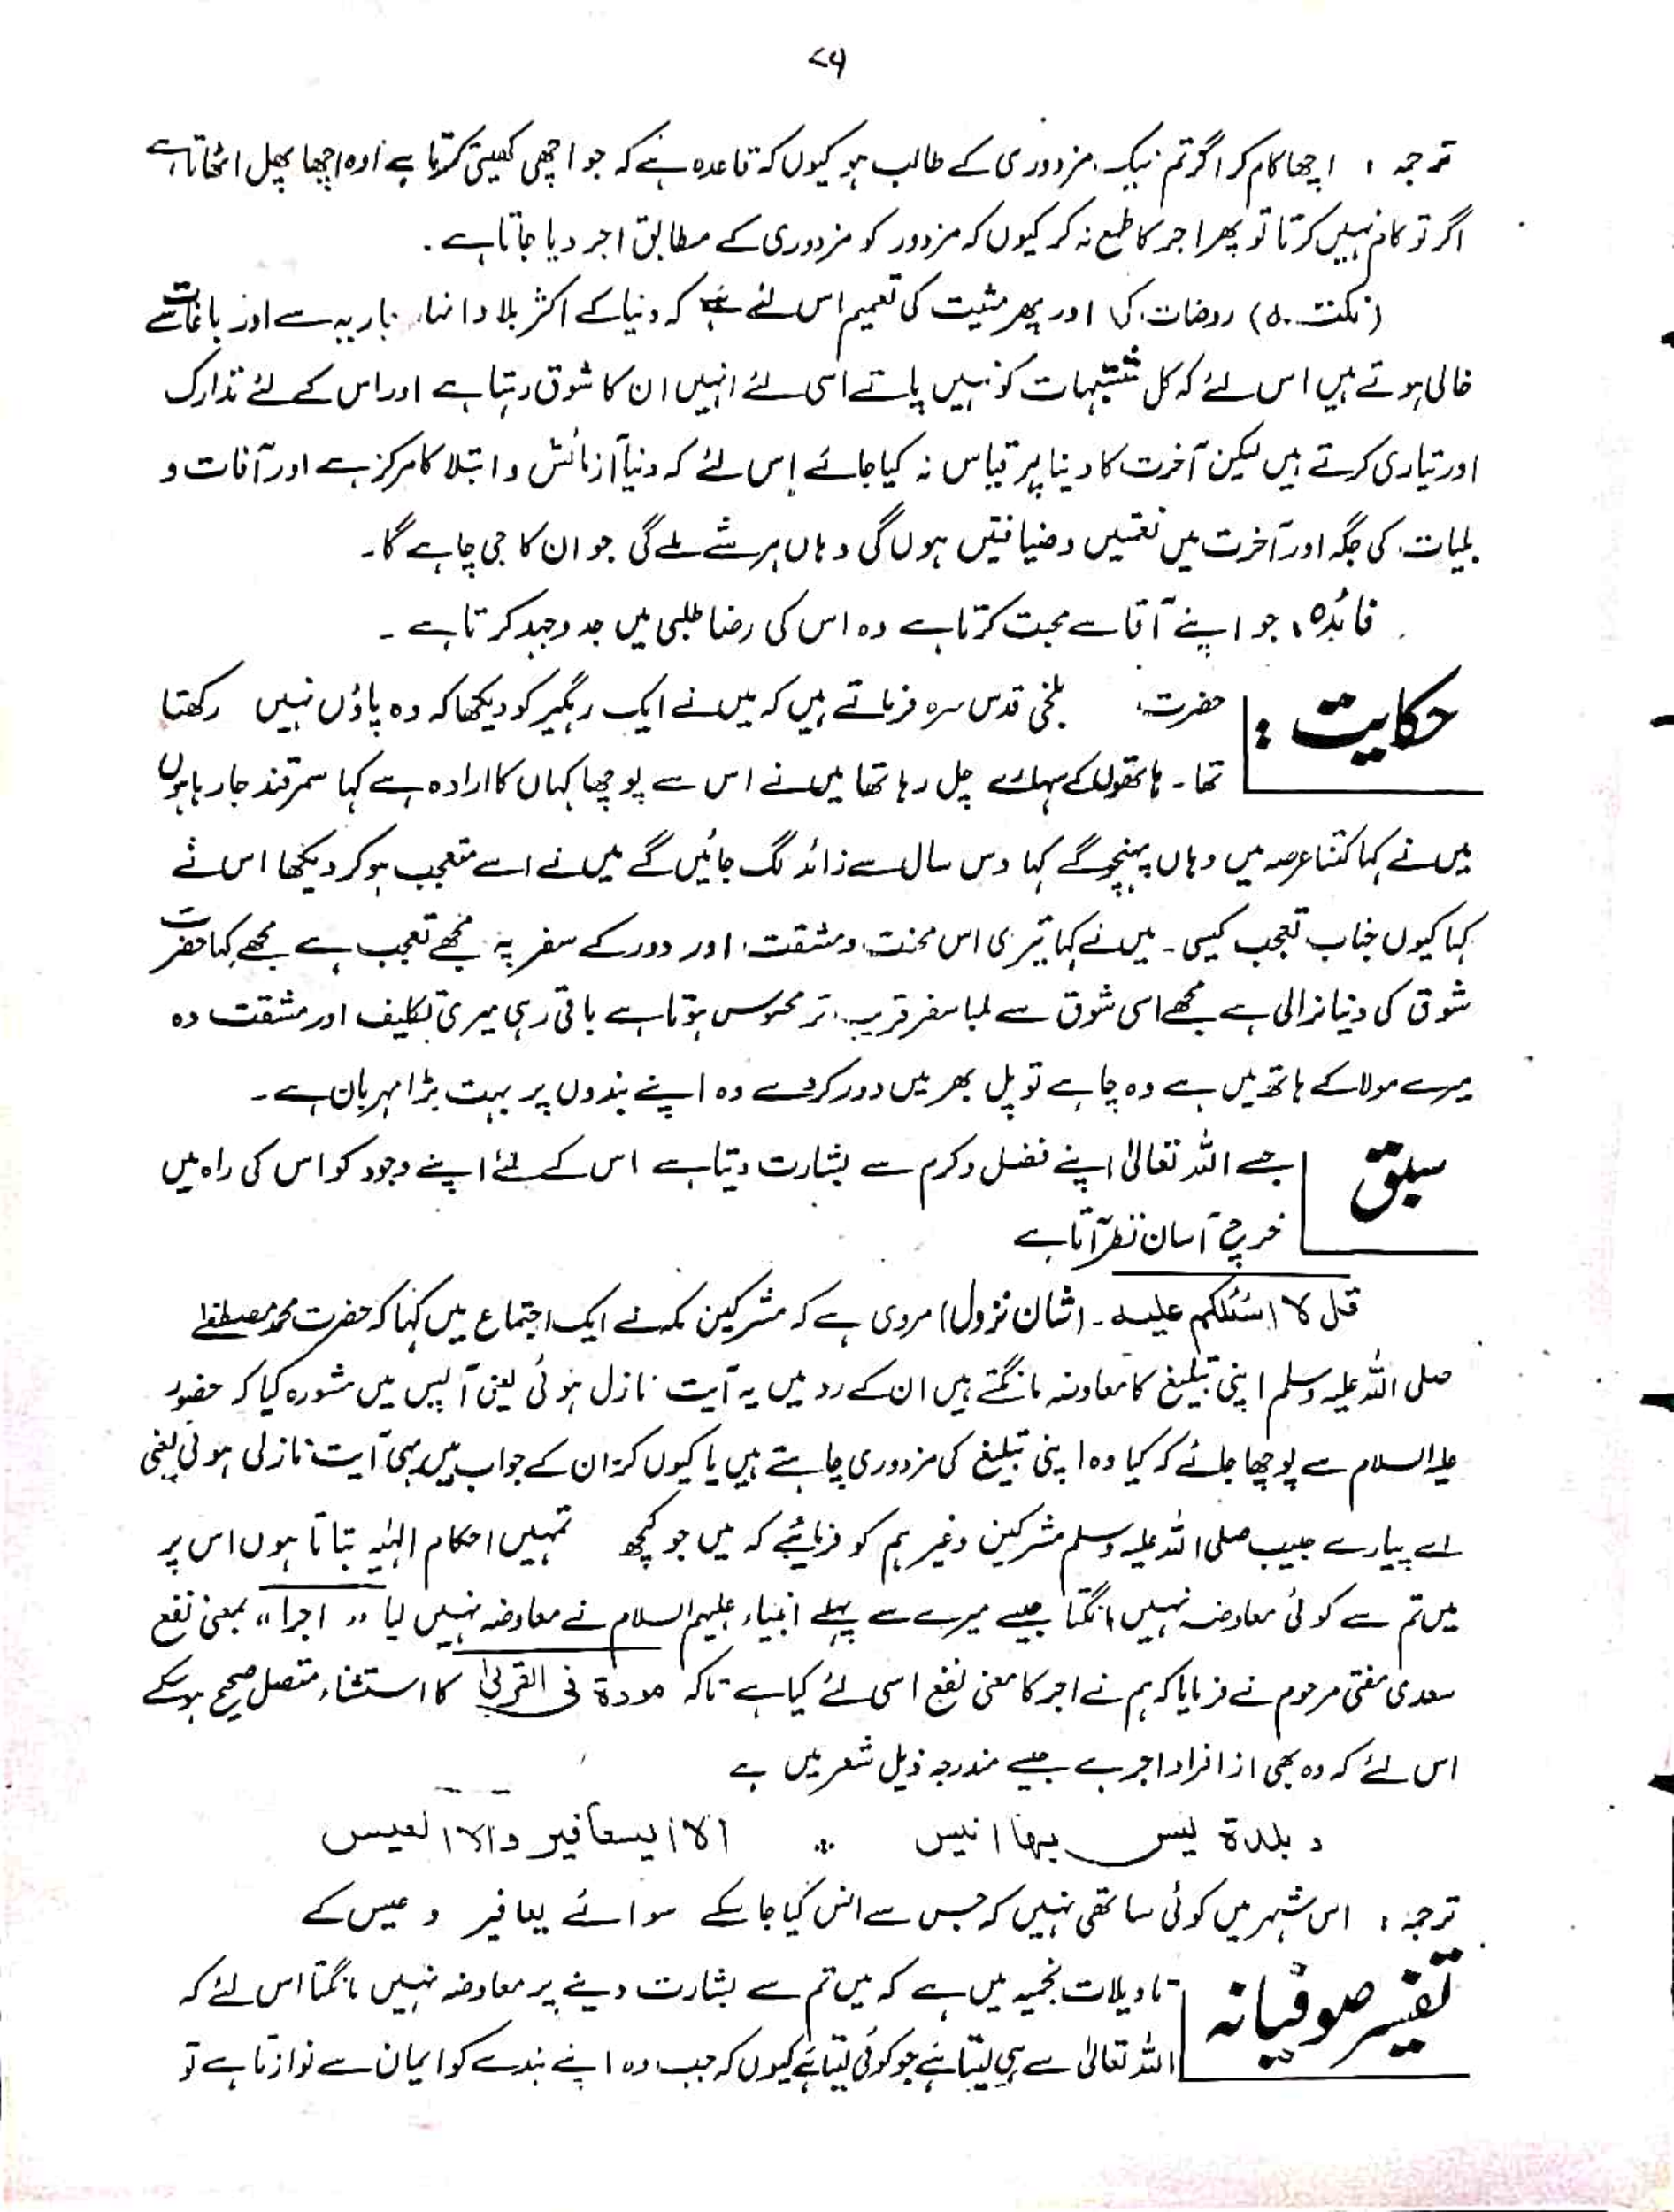 ۷۹
ترجمہ : اچھا کام کر اگر تم نیک مزدوری کے طالب ہو کیوں کہ قاعدہ ہے کہ جو اچھی کھیتی کرتا ہے اوہ اچھا پھل اٹھاتا ہے
اگر تو کام نہیں کرتا تو پھر اجر کا طمع نہ کر کیوں کہ مزدور کو مزدوری کے مطابق اجر دیا جاتا ہے ۔
(نکتہ) روضات کی اور پھر مشیت کی تعمیم اس لئے ہے کہ دنیا کے اکثر بلاد انہار جاریہ سے اور باغات سے
خالی ہوتے ہیں اس لئے کہ کل مشتہیات کو نہیں پاتے اسی لئے انہیں ان کا شوق رہتا ہے اور اس کے لئے تدارک
اور تیاری کرتے ہیں لیکن آخرت کا دینا پر قیاس نہ کیا جائے اس لئے کہ دنیا آزمائش و ابتلا کا مرکز ہے اور آفات و
بلیات کی جگہ اور آخرت میں نعمتیں و ضیافتیں ہوں گی وہاں ہر شے ملے گی جو ان کا جی چاہے گا۔
فائدہ ، جو اپنے آقا سے محبت کرتا ہے وہ اس کی رضا طلبی میں جد و جہد کرتا ہے ۔
حکایت : حضرت بلخی قدس سرہ فرماتے ہیں کہ میں نے ایک رہگیر کو دیکھا کہ وہ پاؤں نہیں رکھتا
تھا ۔ ہاتھوں کے سہارے چل رہا تھا میں نے اس سے پوچھا کہاں کا ارادہ ہے کہا سمرقند جا رہا ہوں
میں نے کہا کتنا عرصہ میں وہاں پہنچو گے کہا دس سال سے زائد لگ جائیں گے میں نے اسے متعجب ہو کر دیکھا اس نے
کہا کیوں جناب تعجب کیسی ۔ میں نے کہا تیری اس محنت و مشقت اور دور کے سفر پہ مجھے تعجب ہے مجھے کہا حضرت
شوق کی دنیا نرالی ہے مجھے اسی شوق سے لمبا سفر قریب تر محسوس ہوتا ہے باقی رہی میری تکلیف اور مشقت وہ
میرے مولا کے ہاتھ میں ہے وہ چاہے تو پل بھر میں دور کر دے وہ اپنے بندوں پر بہت بڑا مہربان ہے ۔
سبق جسے اللہ تعالیٰ اپنے فضل و کرم سے بشارت دیتا ہے اس کے لئے اپنے وجود کو اس کی راہ میں
خرچ آسان نظر آتا ہے
قل لا اسئلکم علیہ ۔ (شان نزول) مروی ہے کہ مشرکین مکہ نے ایک اجتماع میں کہا کہ حضرت محمد مصطفٰے
صلی اللہ علیہ وسلم اپنی تبلیغ کا معاوضہ مانگتے ہیں ان کے رد میں یہ آیت نازل ہوئی یعنی آپس میں مشورہ کیا کہ حضور
علیہ السلام سے پوچھا جائے کہ کیا وہ اپنی تبلیغ کی مزدوری چاہتے ہیں یا کیوں کر ان کے جواب میں یہی آیت نازل ہوئی یعنی
اے پیارے حبیب صلی اللہ علیہ وسلم مشرکین وغیرہم کو فرمائیے کہ میں جو کچھ تمہیں احکام الٰہیہ بتاتا ہوں اس پر
میں تم سے کوئی معاوضہ نہیں مانگتا جیسے میرے سے پہلے انبیاء علیہم السلام نے معاوضہ نہیں لیا "اجرا" بمعنی نفع
سعدی مفتی مرحوم نے فرمایا کہ ہم نے اجر کا معنی نفع اسی لئے کیا ہے تاکہ مودۃ فی القربیٰ کا استثناء متصل صحیح ہو سکے
اس لئے کہ وہ بھی از افراد اجر ہے جیسے مندرجہ ذیل شعر میں ہے
و بلدۃ لیس بھا انیس * الا الیعافیر والا العیس
ترجمہ : اس شہر میں کوئی ساتھی نہیں کہ جس سے انس کیا جا سکے سوائے یعافیر و عیس کے
تفسیر صوفیانہ تاویلات نجمیہ میں ہے کہ میں تم سے بشارت دینے پر معاوضہ نہیں مانگتا اس لئے کہ
اللہ تعالیٰ سے ہی لیتا ہے جو کوئی لیتا ہے کیوں کہ جب وہ اپنے بندے کو ایمان سے نوازتا ہے تو